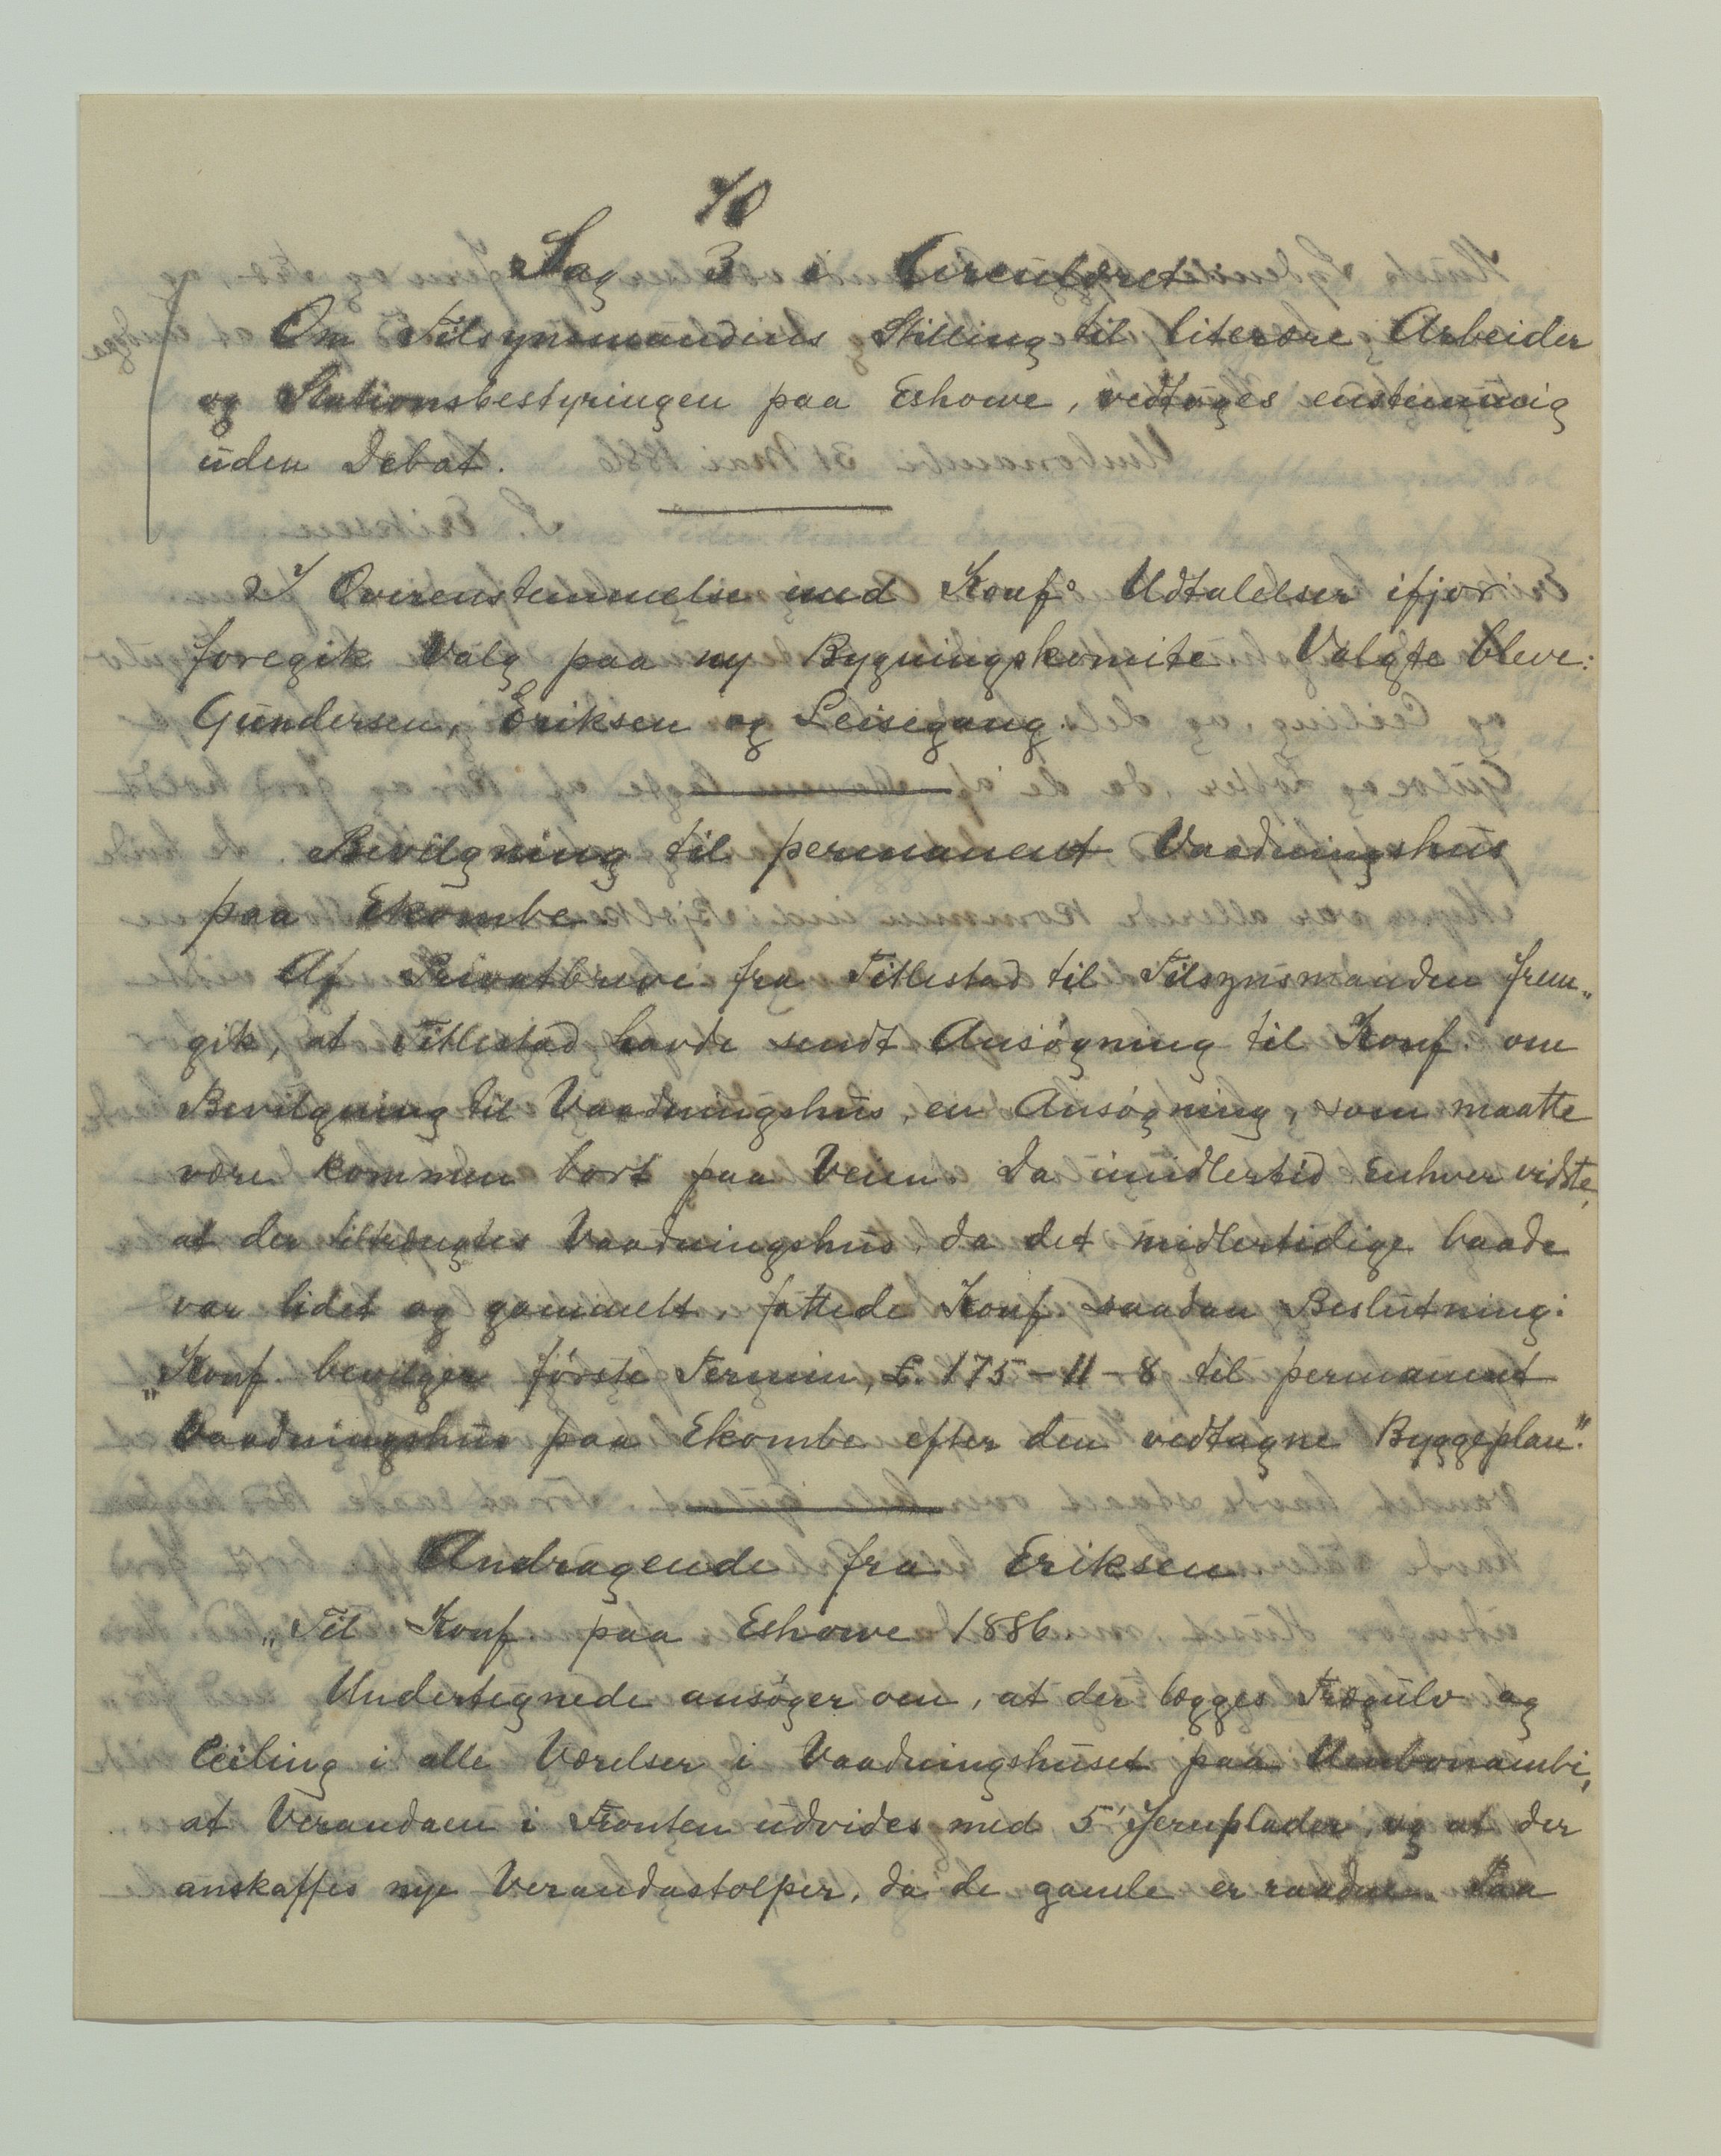 10
Sag 3 i Circulæret
Om Tilsynsmandens Stilling til literære Arbeider
og Stationsbestyringen paa Eshowe, vedtoges enstemmig
uden Debat.
I Overensstemmelse med Konfs Udtalelser ifjor
foregik Valg paa ny Bygningskomite. Valgte bleve:
Gundersen, Eriksen og Leisegang.
Bevilgning til permanent Vaaningshus
paa Ekombe.
Af Privatbreve fra Titlestad til Tilsynsmanden frem„
gik, at Titlestad havde sendt Ansøgning til Konf. om
Bevilgning til Vaaningshus, en Ansøgning, som maatte
være kommen bort paa Veien. Da imidlertid Enhver vidste,
at der tiltrængtes Vaaningshus, da det midlertidige baade
var lidet og gammelt, fattede Konf. saadan Beslutning:
„Konf. bevilger første Termin, £. 175-11-8 til permanent
Vaaningshus paa Ekombe efter den vedtagne Byggeplan."
Andragende fra Eriksen
„Til Konf. paa Eshowe 1886
Undertegnede ansøger om, at der lægges Trægulv og
Ceiling i alle Værelser i Vaaningshuset paa Umbonambi,
at Verandaen i Fronten udvides med 5' Jernplader, og at der
anskaffes nye Verandastolper, da de gamle er raadne. Paa